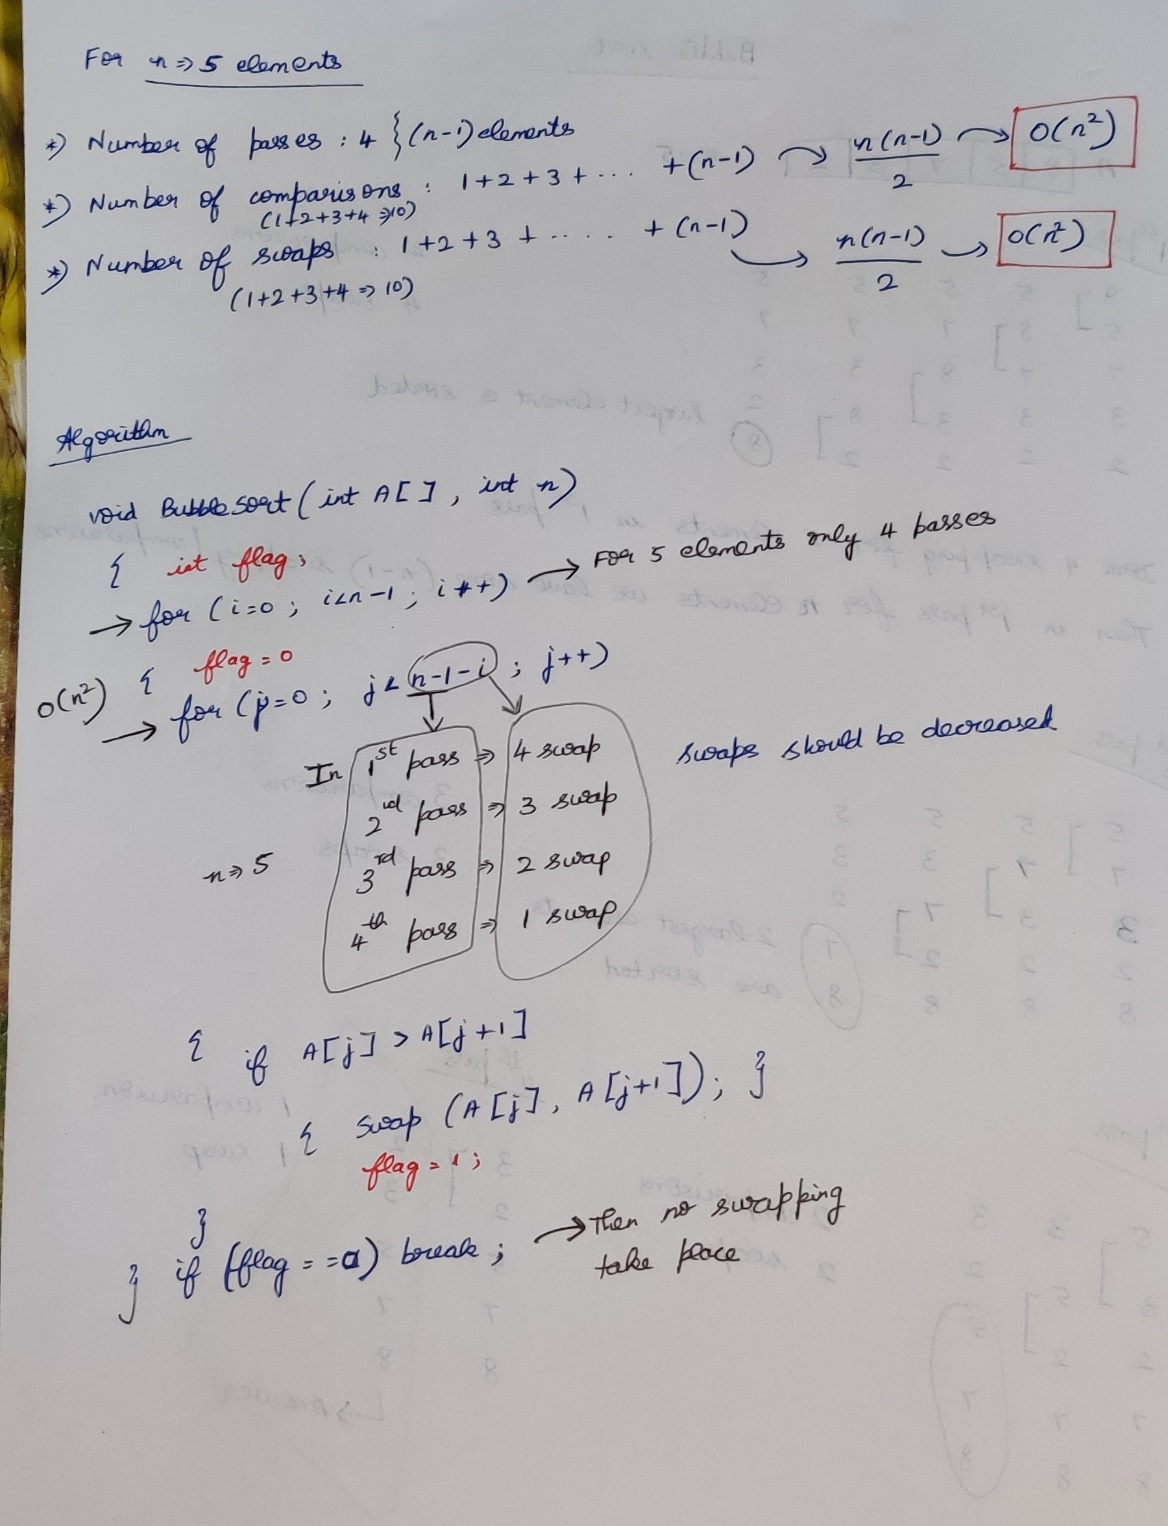 For n => 5 elements
*) Number of passes : 4 } (n-1) elements
*) Number of comparisons : 1+2+3+ . . . +(n-1) → n(n-1)/2 → O(n²)
(1+2+3+4 => 10)
*) Number of swaps : 1+2+3 + . . . . . + (n-1) → n(n-1)/2 → O(n²)
(1+2+3+4 => 10)
Algorithm
void Bubble sort (int A[ ] , int n)
{ int flag;
→ for (i=0 ; i<n-1 ; i++) → For 5 elements only 4 passes
{ flag=0
O(n²)
→ for (j=0 ; j < n-1-i ; j++)
In 1st pass => 4 swap swaps should be decreased
2nd pass => 3 swap
n => 5 3rd pass => 2 swap
4th pass => 1 swap
{ if A[j] > A[j+1]
{ swap (A[j], A[j+1]); }
flag = 1;
}
} if (flag == 0) break ; → Then no swapping
take place